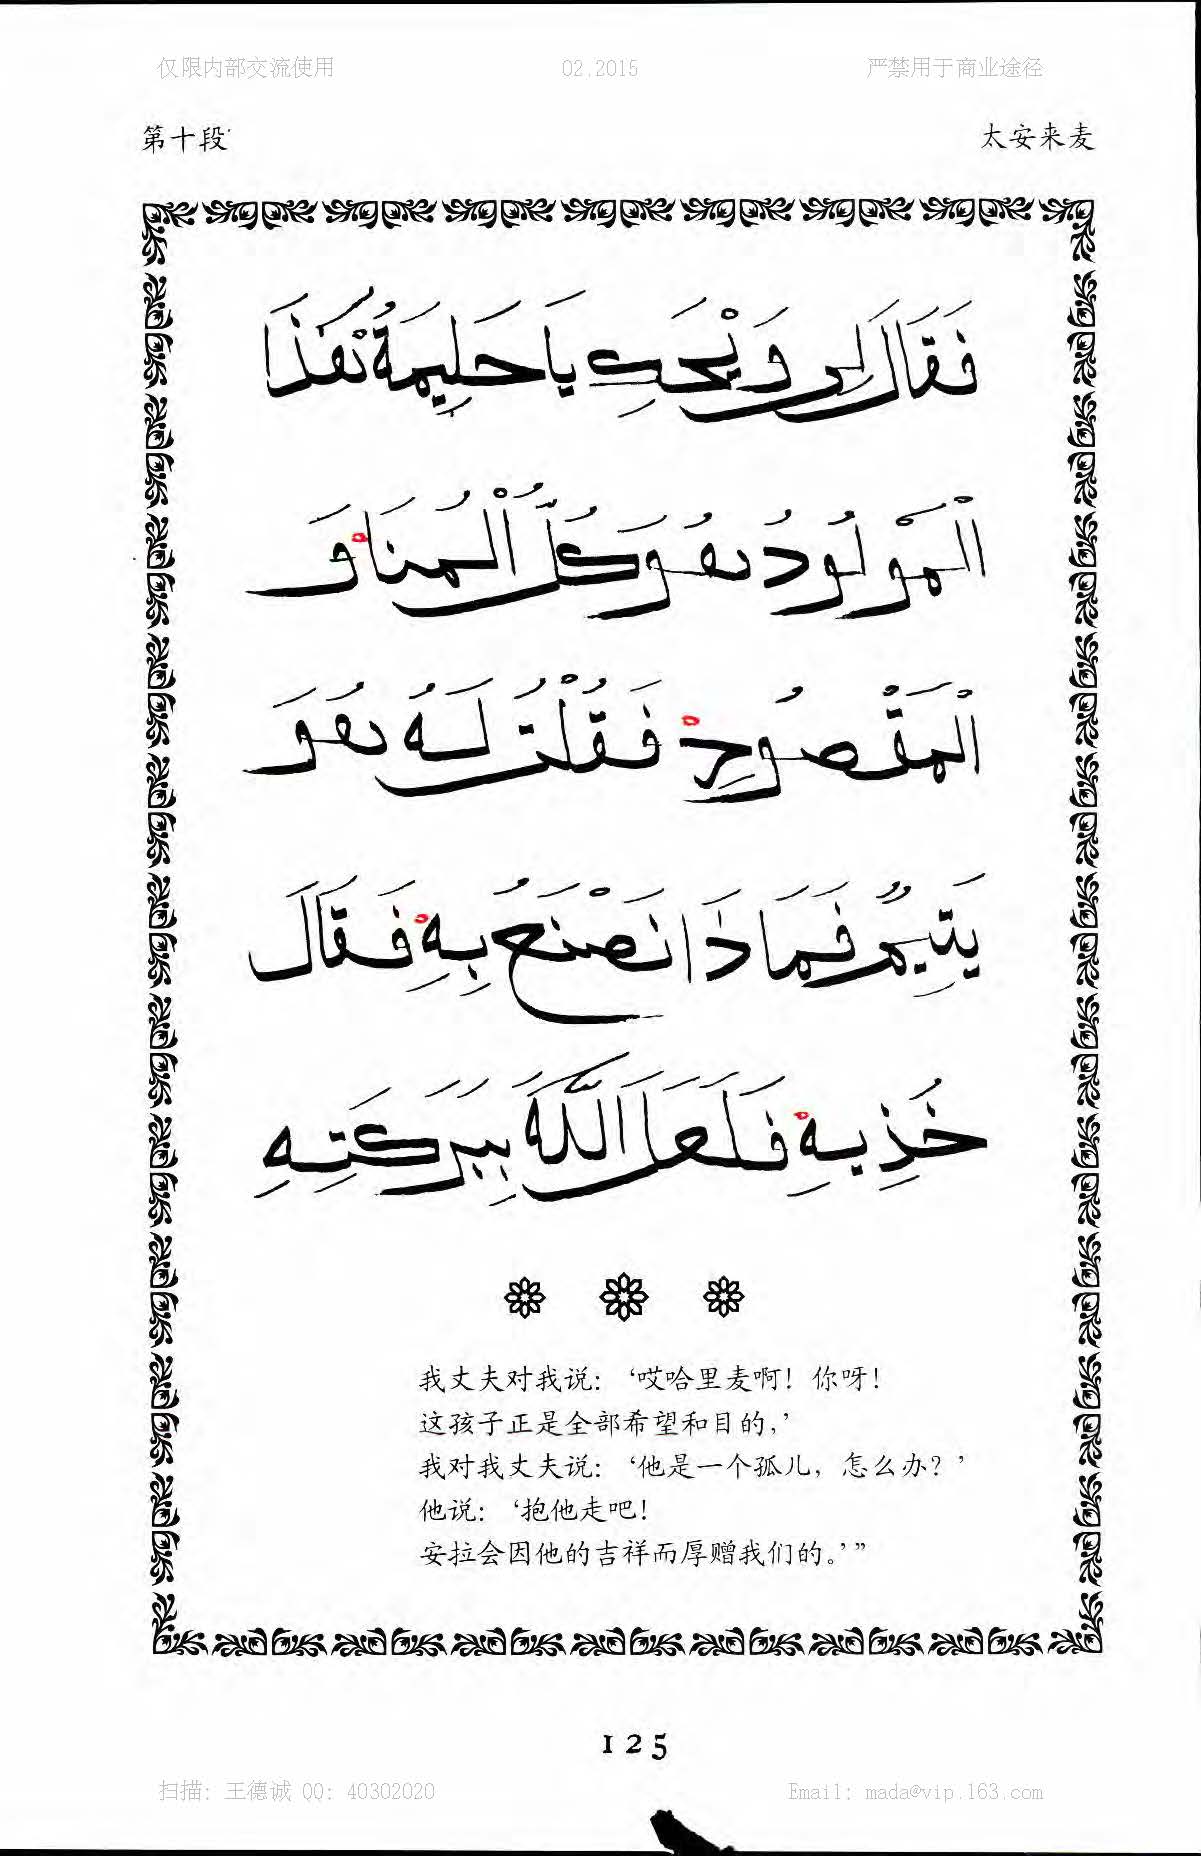 仅限内部交流使用 02.2015 严禁用于商业途径
第十段 太安来麦
فَقَالَ لِي وَيْحَكِ يَا حَلِيمَةُ هَٰذَا
الْمَوْلُودُ هُوَ كُلُّ الْمُنَا وَ
الْمَقْصُودِ فَقُلْتُ لَهُ هُوَ
يَتِيمٌ فَمَا ذَا نَصْنَعُ بِهِ فَقَالَ
خُذِيهِ فَلَعَلَ اللَّهَ بِبَرَكَتِهِ
我丈夫对我说：‘哎哈里麦啊！你呀！
这孩子正是全部希望和目的，’
我对我丈夫说：‘他是一个孤儿，怎么办？’
他说：‘抱他走吧！
安拉会因他的吉祥而厚赠我们的。’”
125
扫描：王德诚 QQ: 40302020 Email: mada@vip.163.com